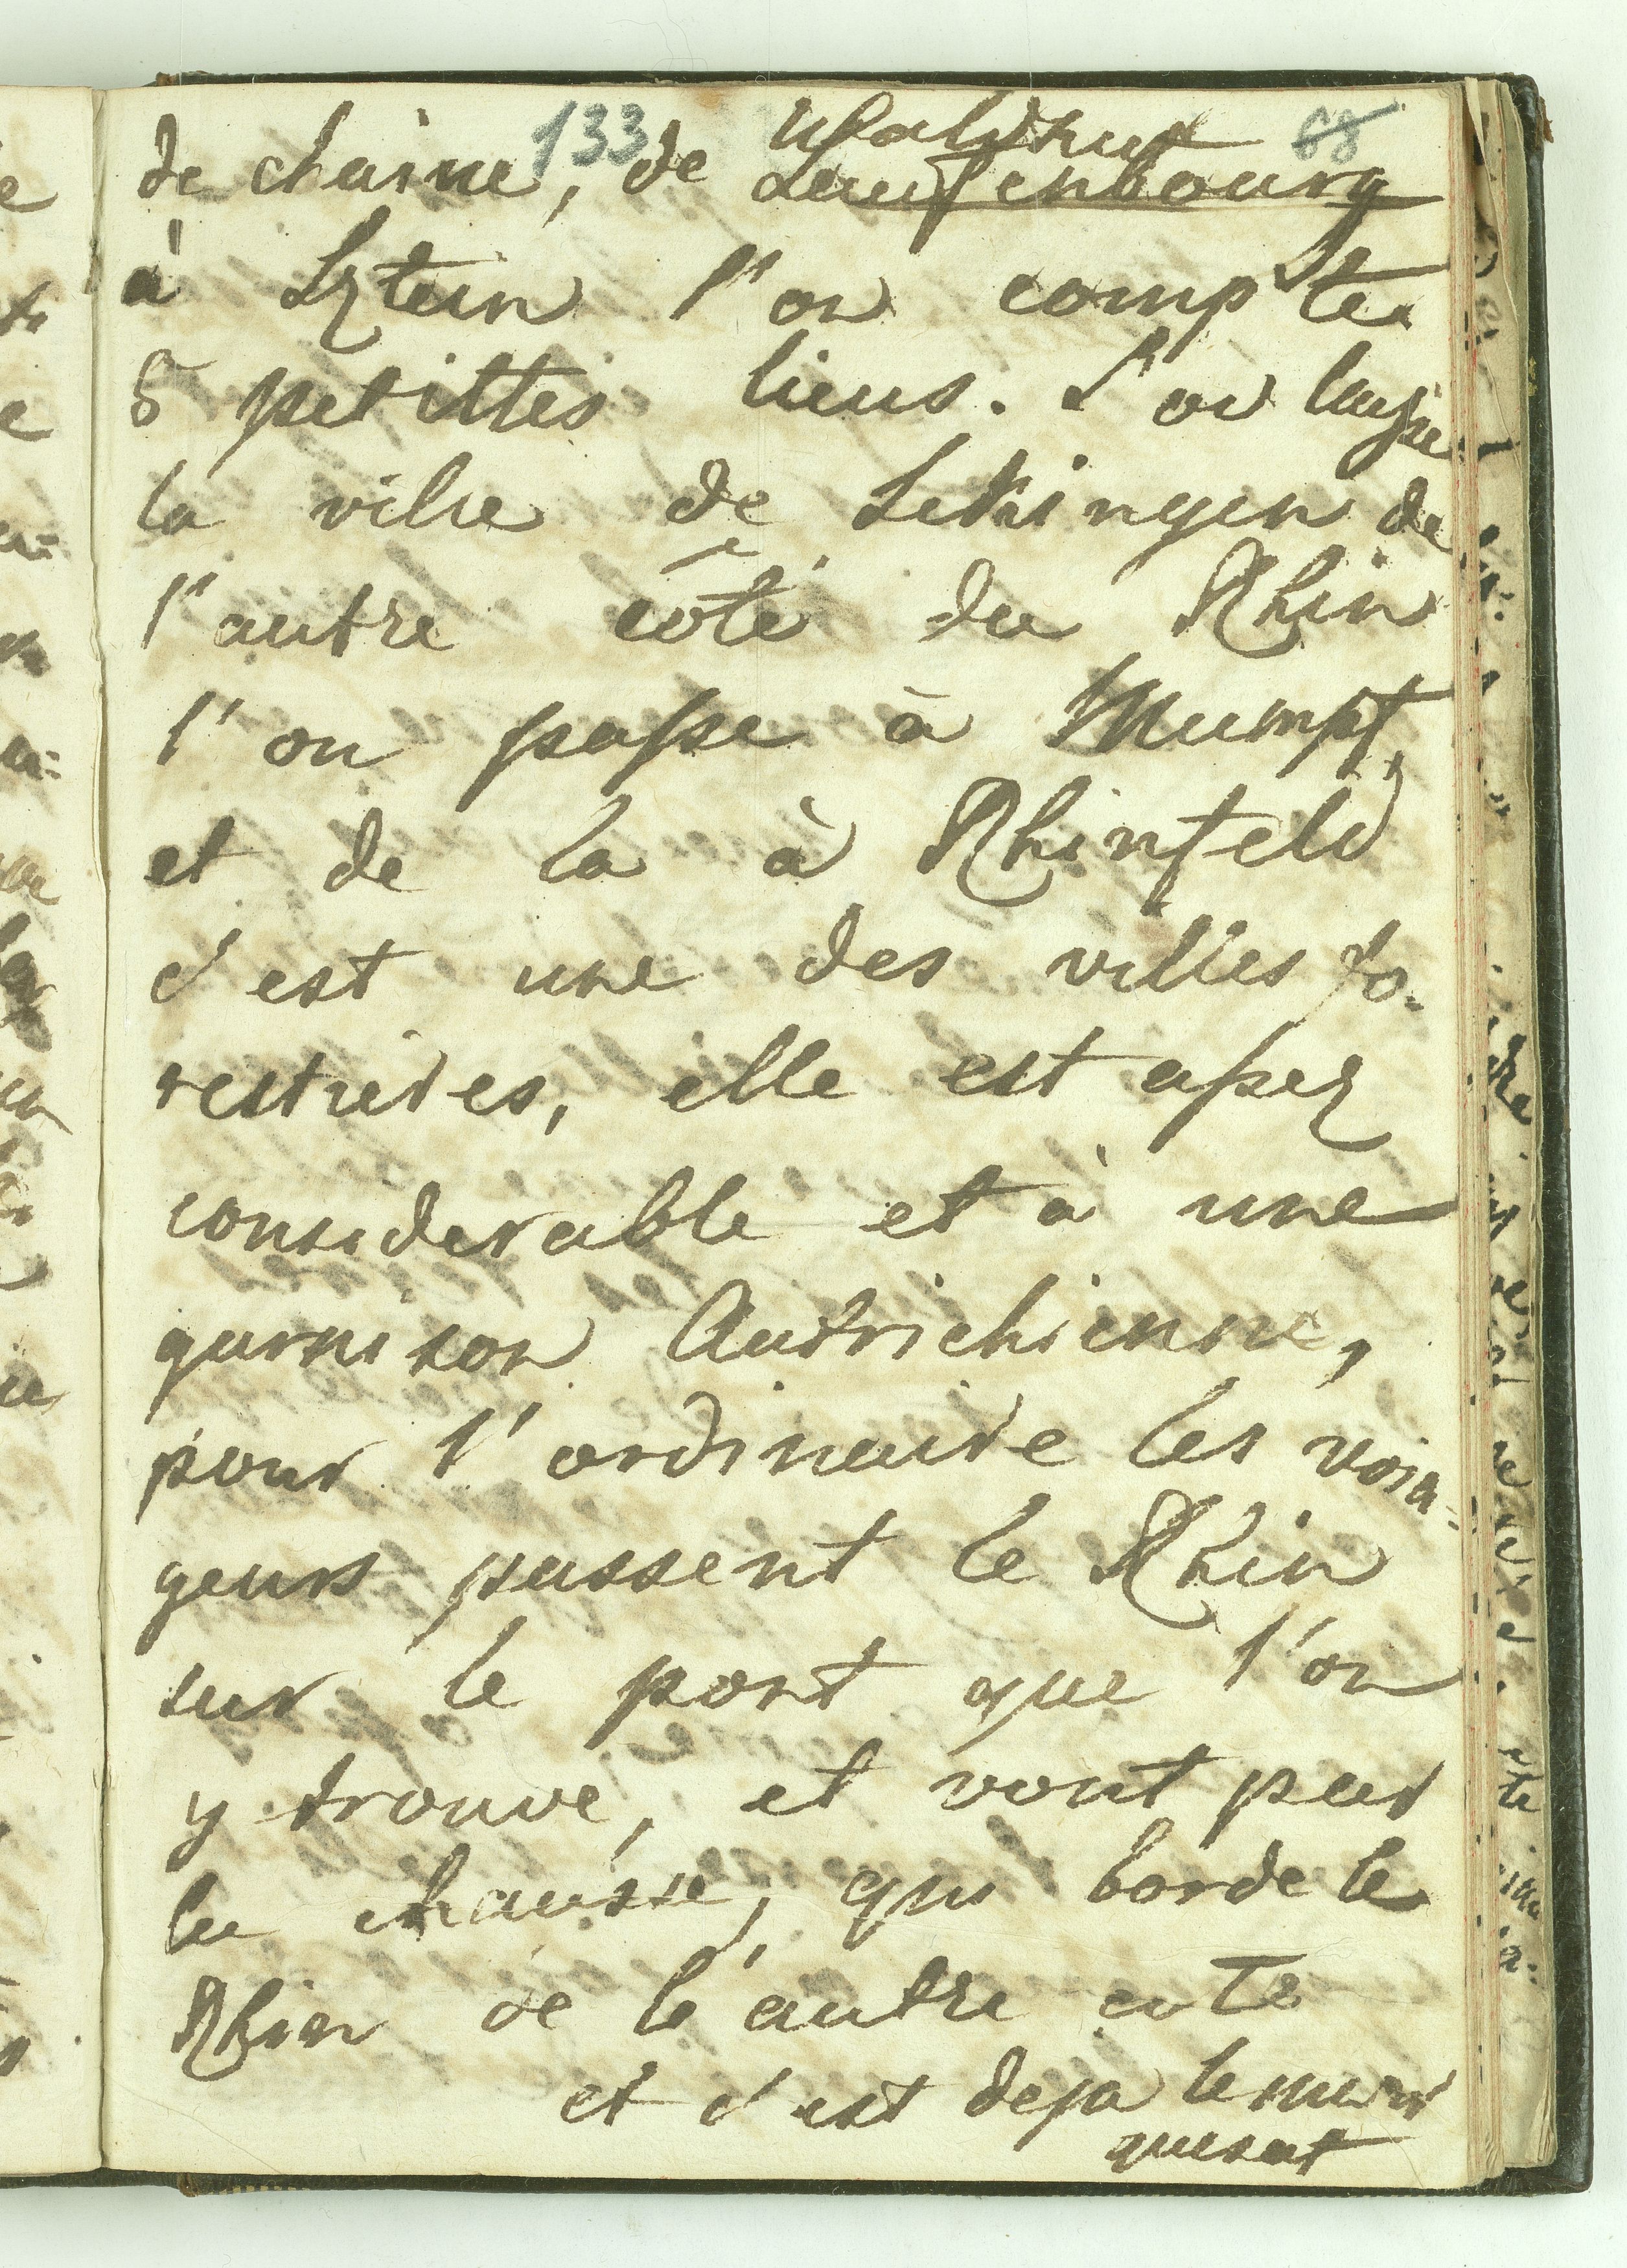 133
68
Waldhut
de chaine, de Laufenbourg
à Sztein l'on compte
5 petittes lieus. L'on laysse
la ville de Sekingen de
l'autre côté du Rhin
l'on passe à Mumpf,
et de la à Rhinfeld
c'est une des villes fo-
restieres, elle est assez
considerable et à une
garnison Autrichienne,
pour l'ordinaire les voia-
geurs passent le Rhin
sur le pont que l'on
y trouve, et vont par
la chaussée, qui borde le
Rhin de l'autre coté
et c'est deja le mar
quisat